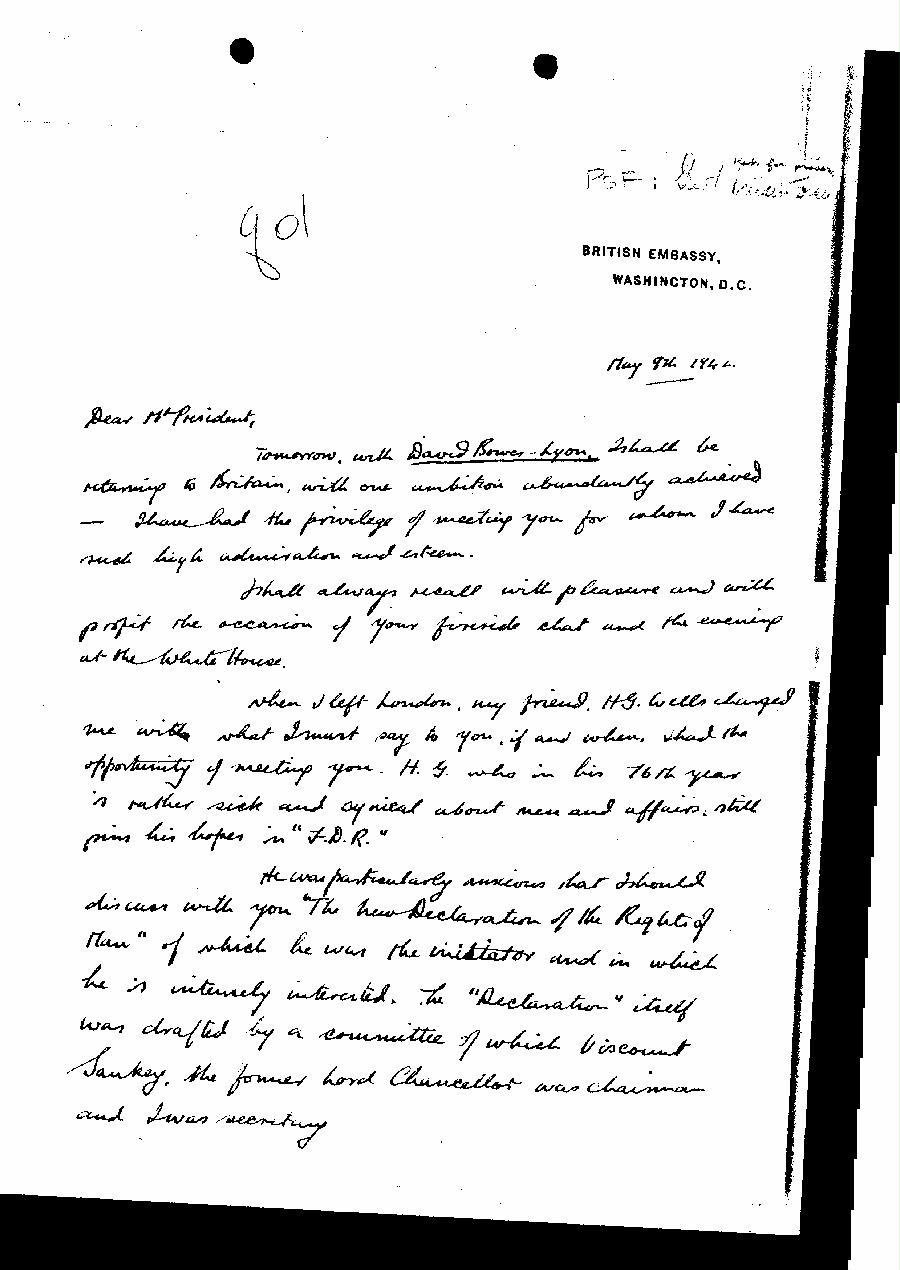 PSF:
god
BRITISH EMBASSY,
WASHINGTON, D.C.
May 9th 194
Dear Mr President,
Tomorrow, with David Bowes-Lyon, I shall be
returning to Britain, with one ambition abundantly achieved
— I have had the privilege of meeting you for whom I have
such high admiration and esteem.
I shall always recall with pleasure and with
profit the occasion of your fireside chat and the evening
at the White House.
When I left London, my friend, H.G. Wells charged
me with what I must say to you, if and when I had the
opportunity of meeting you. H.G. who in his 76th year
is rather sick and cynical about men and affairs, still
pins his hopes in "F.D.R."
He was particularly anxious that I should
discuss with you "The New Declaration of the Rights of
Man" of which he was the initiator and in which
he is intensely interested. The "Declaration" itself
was drafted by a committee of which Viscount
Sankey, the former Lord Chancellor was chairman
and I was secretary